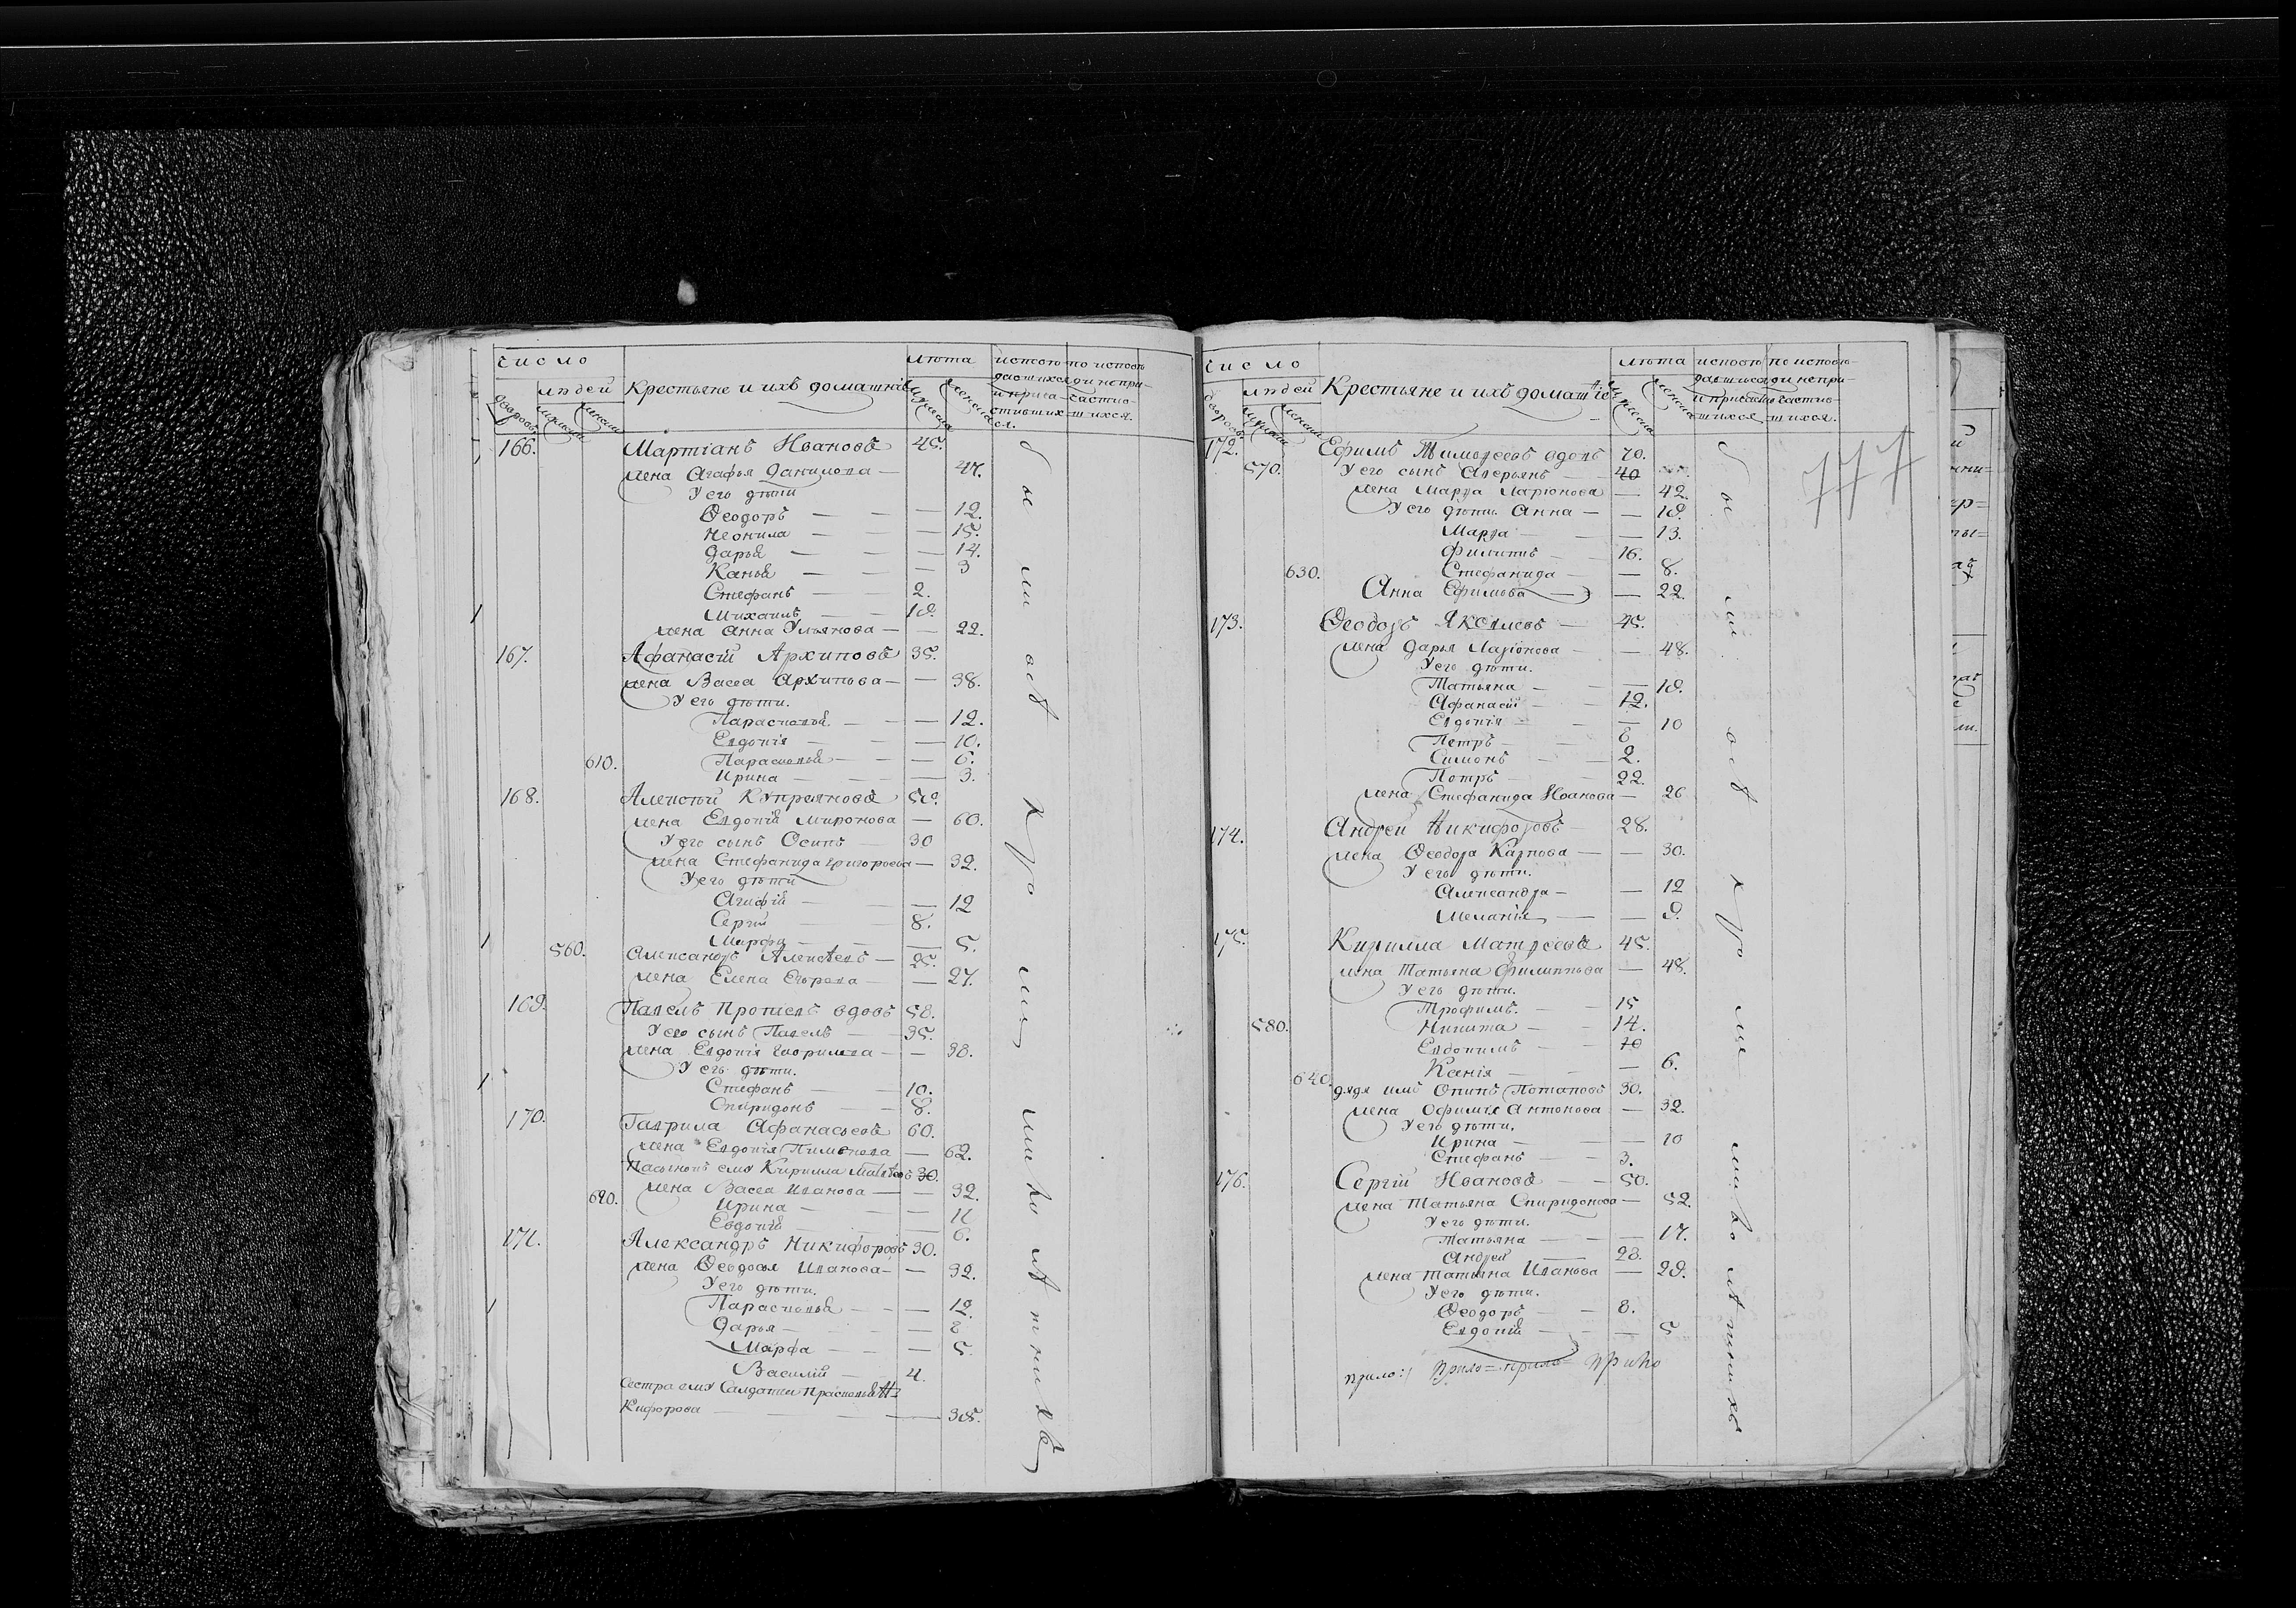 число
лѣта
исповѣ
по исповѣ
людей
Крестьяне и ихъ домашніе
давшихся
ди непри-
дворовъ
мужеска
женска
и прича-
частив-
стивших
шихся.
ся.
166. Мартіанъ Ивановъ 45.
жена Агафья Данилова — 47.
У его дѣти
Ѳеодоръ — — — 12.
Неонила — — — 15.
Дарья — — — 14.
— — — 3
Стефанъ — — 2.
Михаилъ — — 19.
жена Анна Ульянова — — 22.
167. Афанасій Архиповъ 35.
жена Васса Архипова — — 38.
У его дѣти.
Парасковья — — — 12.
Евдокія — — 10.
610. Парасковья — — 6.
Ирина — — — 3.
168. Алексѣй Купреяновъ
жена Евдокія Миронова — 60.
У его сынъ Осипъ — 30
жена Стефанида Григорьева — 32.
У его дѣти
Агафія — — — 12
Сергій — 8.
Марфа — — — 5.
560. Александръ Алексѣевъ — 25.
жена Елена Егорова — — 27.
169. Павелъ вдовъ 58.
У его сынъ Павелъ — 35.
жена Евдокія Гаврилова — — 38.
У его дѣти.
Стефанъ — — 10.
Спиридонъ — — 8.
170. Гаврила Афанасьевъ 60.
жена Евдокія Пименова — 62.
Пасынокъ ему Кирилла 30.
жена Васса Иванова — — 32.
620. Ирина — — — 11
Евдокія — — 6.
171. Александръ Никифоровъ 30.
жена Ѳеодосья Иванова — — 32.
У его дѣти.
Парасковья — — — 12.
Дарья — — — 8
Марфа — — — 5.
Василій — 4.
Сестра ему Салдатка Прасковья Ни
кифорова — — — — 35.
были всѣ кромѣ малолѣтнихъ
число
лѣта
исповѣ
по исповѣ-
людей
Крестьяне и ихъ домашніе
давшихся
ди непри-
дворовъ
мужеска
женска
и причасти
частив-
вшихся
шихся.
777
172. Ефимъ Тимофеевъ вдовъ 70.
570. У его сынъ Аверьянъ — 40
жена Марфа Ларіонова — 42.
У его дѣти Анна — — 19.
Марфа — — — 13.
Филиппъ — — 16.
630. Стефанида — — 8.
Анна Ефимова — — 22.
173. Ѳеодоръ Яковлевъ — 45.
жена Дарья Ларіонова — — 48.
У его дѣти.
Татьяна — — — 19.
Афанасій — — 12.
Евдокія — — — 10
Петръ — — 8
Симонъ — — 2.
Петръ — — 22.
жена Стефанида Иванова — 26
174. Андрей Никифоровъ — 28.
жена Ѳеодора Карпова — — 30.
У его дѣти.
Александра — — 12
Меланія — — 9.
175. Кирилла Матвѣевъ 45.
жена Татьяна Филиппова — 48.
У его дѣти.
Трофимъ — — 15
580. Никита — — 14.
Евдокимъ — — 10
— — — 6.
640. дядя имъ Потаповъ 30.
жена Офимія Антонова — 32.
У его дѣти.
Ирина — — — 10
Стефанъ — — 3.
176. Сергій Ивановъ — — 50.
жена Татьяна Спиридонова — 52.
У его дѣти.
Татьяна — — — 17.
Андрей — — 28.
жена Татьяна Иванова — 29.
У его дѣти.
Ѳеодоръ — — 8.
Евдокія — — — 5
были всѣ кромѣ малолѣтнихъ